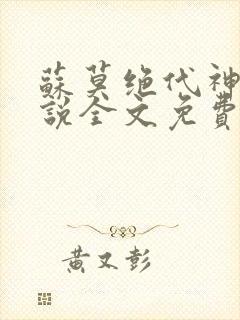 蘇莫絶代神
説全文免費
黃又彭